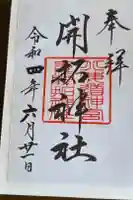 奉拝
開拓神社
令和四年六月廿一日